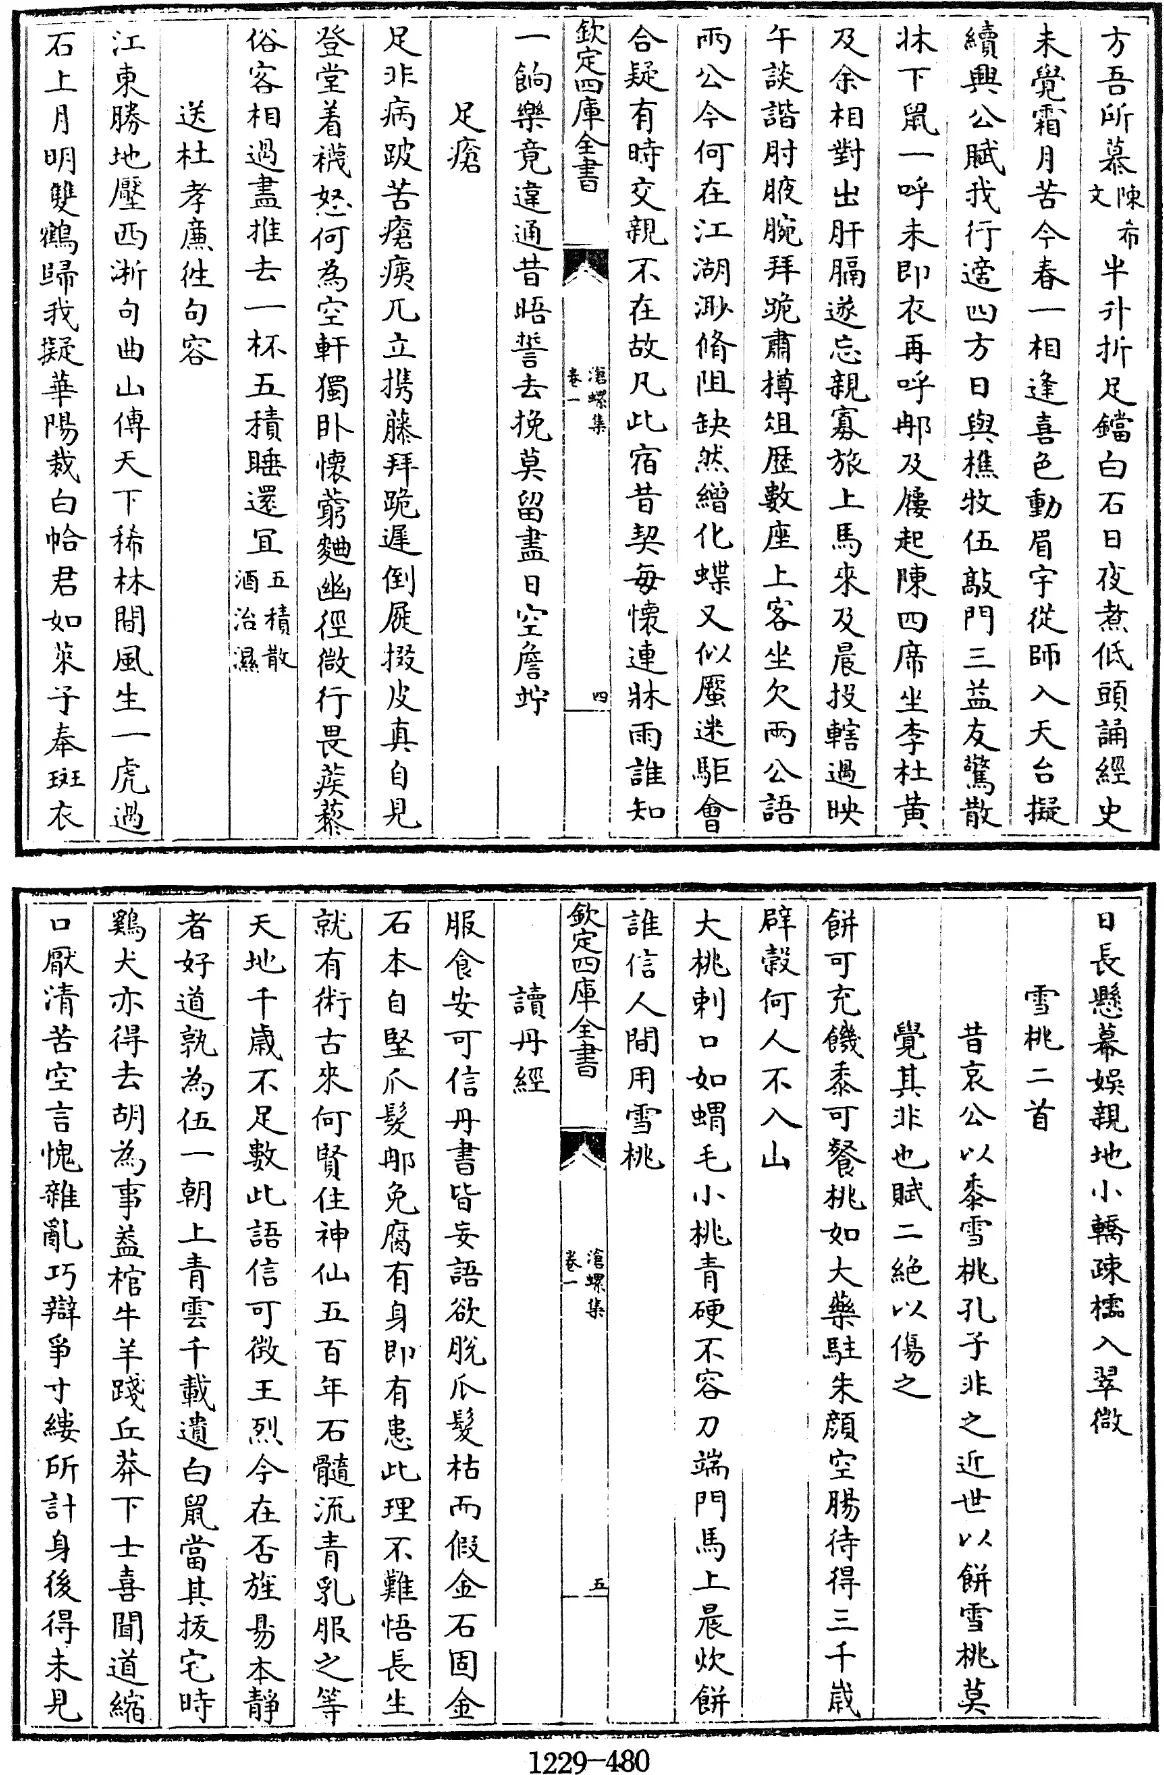 方吾所慕陳希文半升折足鐺白石日夜煮低頭誦經史
未覺霜月苦今春一相逢喜色動眉宇從師入天台擬
續興公賦我行遊四方日與樵牧伍敲門三益友驚散
牀下鼠一呼未即衣再呼那及屨起陳四席坐李杜黄
及余相對出肝膈遂忘親寡旅上馬來及晨投轄過映
午談諧肘腋腕拜跪肅樽俎歴數座上客坐欠兩公語
兩公今何在江湖渺脩阻缺然繒化蝶又似蜃迷駏會
合疑有時交親不在故凡此宿昔契每懷連牀雨誰知
欽定四庫全書
滄螺集
卷一
四
一餉樂竟違通昔晤誓去挽莫留盡日空詹竚
足瘡
足非病跛苦瘡痍兀立携藤拜跪遲倒屣掇皮真自見
登堂着襪怒何為空軒獨卧懷藭麯幽徑微行畏蒺藜
俗客相過盡推去一杯五積睡還宜五積散酒治濕
送杜孝廉徃句容
江東勝地壓西淅句曲山傳天下稀林間風生一虎過
石上月明雙鶴歸我擬華陽裁白帢君如萊子奉斑衣
日長懸幕娛親地小轎疎檽入翠微
雪桃二首
昔哀公以黍雪桃孔子非之近世以餅雪桃莫
覺其非也賦二絶以傷之
餅可充饑黍可餐桃如大藥駐朱顔空腸待得三千歲
辟榖何人不入山
大桃刺口如蝟毛小桃青硬不容刀端門馬上晨炊餅
誰信人間用雪桃
欽定四庫全書
滄螺集
卷一
五
讀丹經
服食安可信丹書皆妄語欲脱爪髪枯而假金石固金
石本自堅爪髪那免腐有身即有患此理不難悟長生
就有術古來何賢住神仙五百年石髓流青乳服之等
天地千歲不足數此語信可徴王烈今在否旌昜本靜
者好道孰為伍一朝上青雲千載遺白鼠當其拔宅時
鷄犬亦得去胡為事葢棺牛羊踐丘莽下士喜聞道縮
口厭清苦空言愧雜亂巧辯爭寸縷所計身後得未見
1229-480